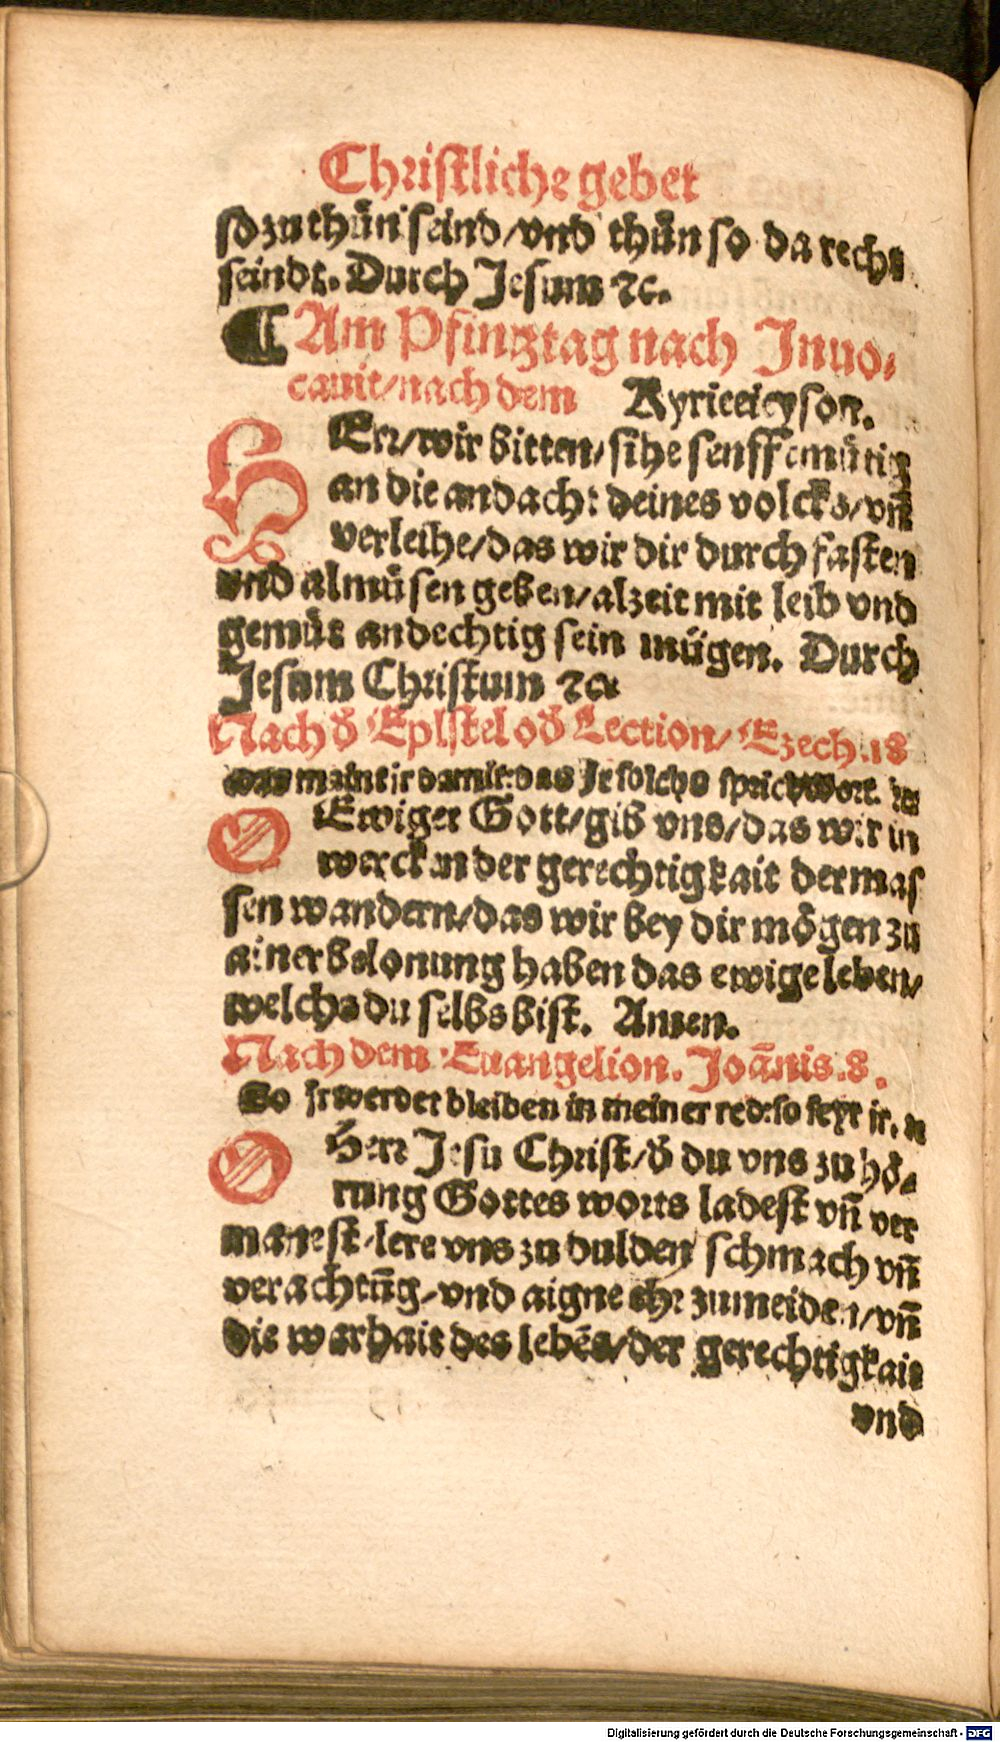 Christliche gebet
so zu thůn seind/vnd thůn so da recht
seindt. Durch Jesum ꝛc.
¶ Am Pfingztag nach Inuo⸗
cauit/nach dem Kyrieeleyson.
HErr/wir bitten/sihe senfftmütig
an die andacht deines volcks/vñ
verleihe/das wir dir durch fasten
vnd almůsen geben/alzeit mit leib vnd
gemüt andechtig sein mügen. Durch
Jesum Christum ꝛc.
Nach đ Epistel ođ Lection/Ezech.18
was maint ir damit: das Ir solchs sprichwort.
O Ewiger Gott/gib vns/das wir in
wercken der gerechtigkait dermas
sen wandern/das wir bey dir mögen zu
ainer belonung haben das ewige leben/
welchs du selbs bist. Amen.
Nach dem Euangelion. Joānis.8.
So ir werdet bleiben in meiner red: so seyt ir.
O Herr Jesu Christ/đ du vns zu hö⸗
rung Gottes worts ladest vñ ver
manest/lere vns zu dulden schmach vñ
verachtūg/vnd aigne ehr zumeiden/vñ
die warhait des lebēs/der gerechtigkait
vnd
Digitalisierung gefördert durch die Deutsche Forschungsgemeinschaft - DFG